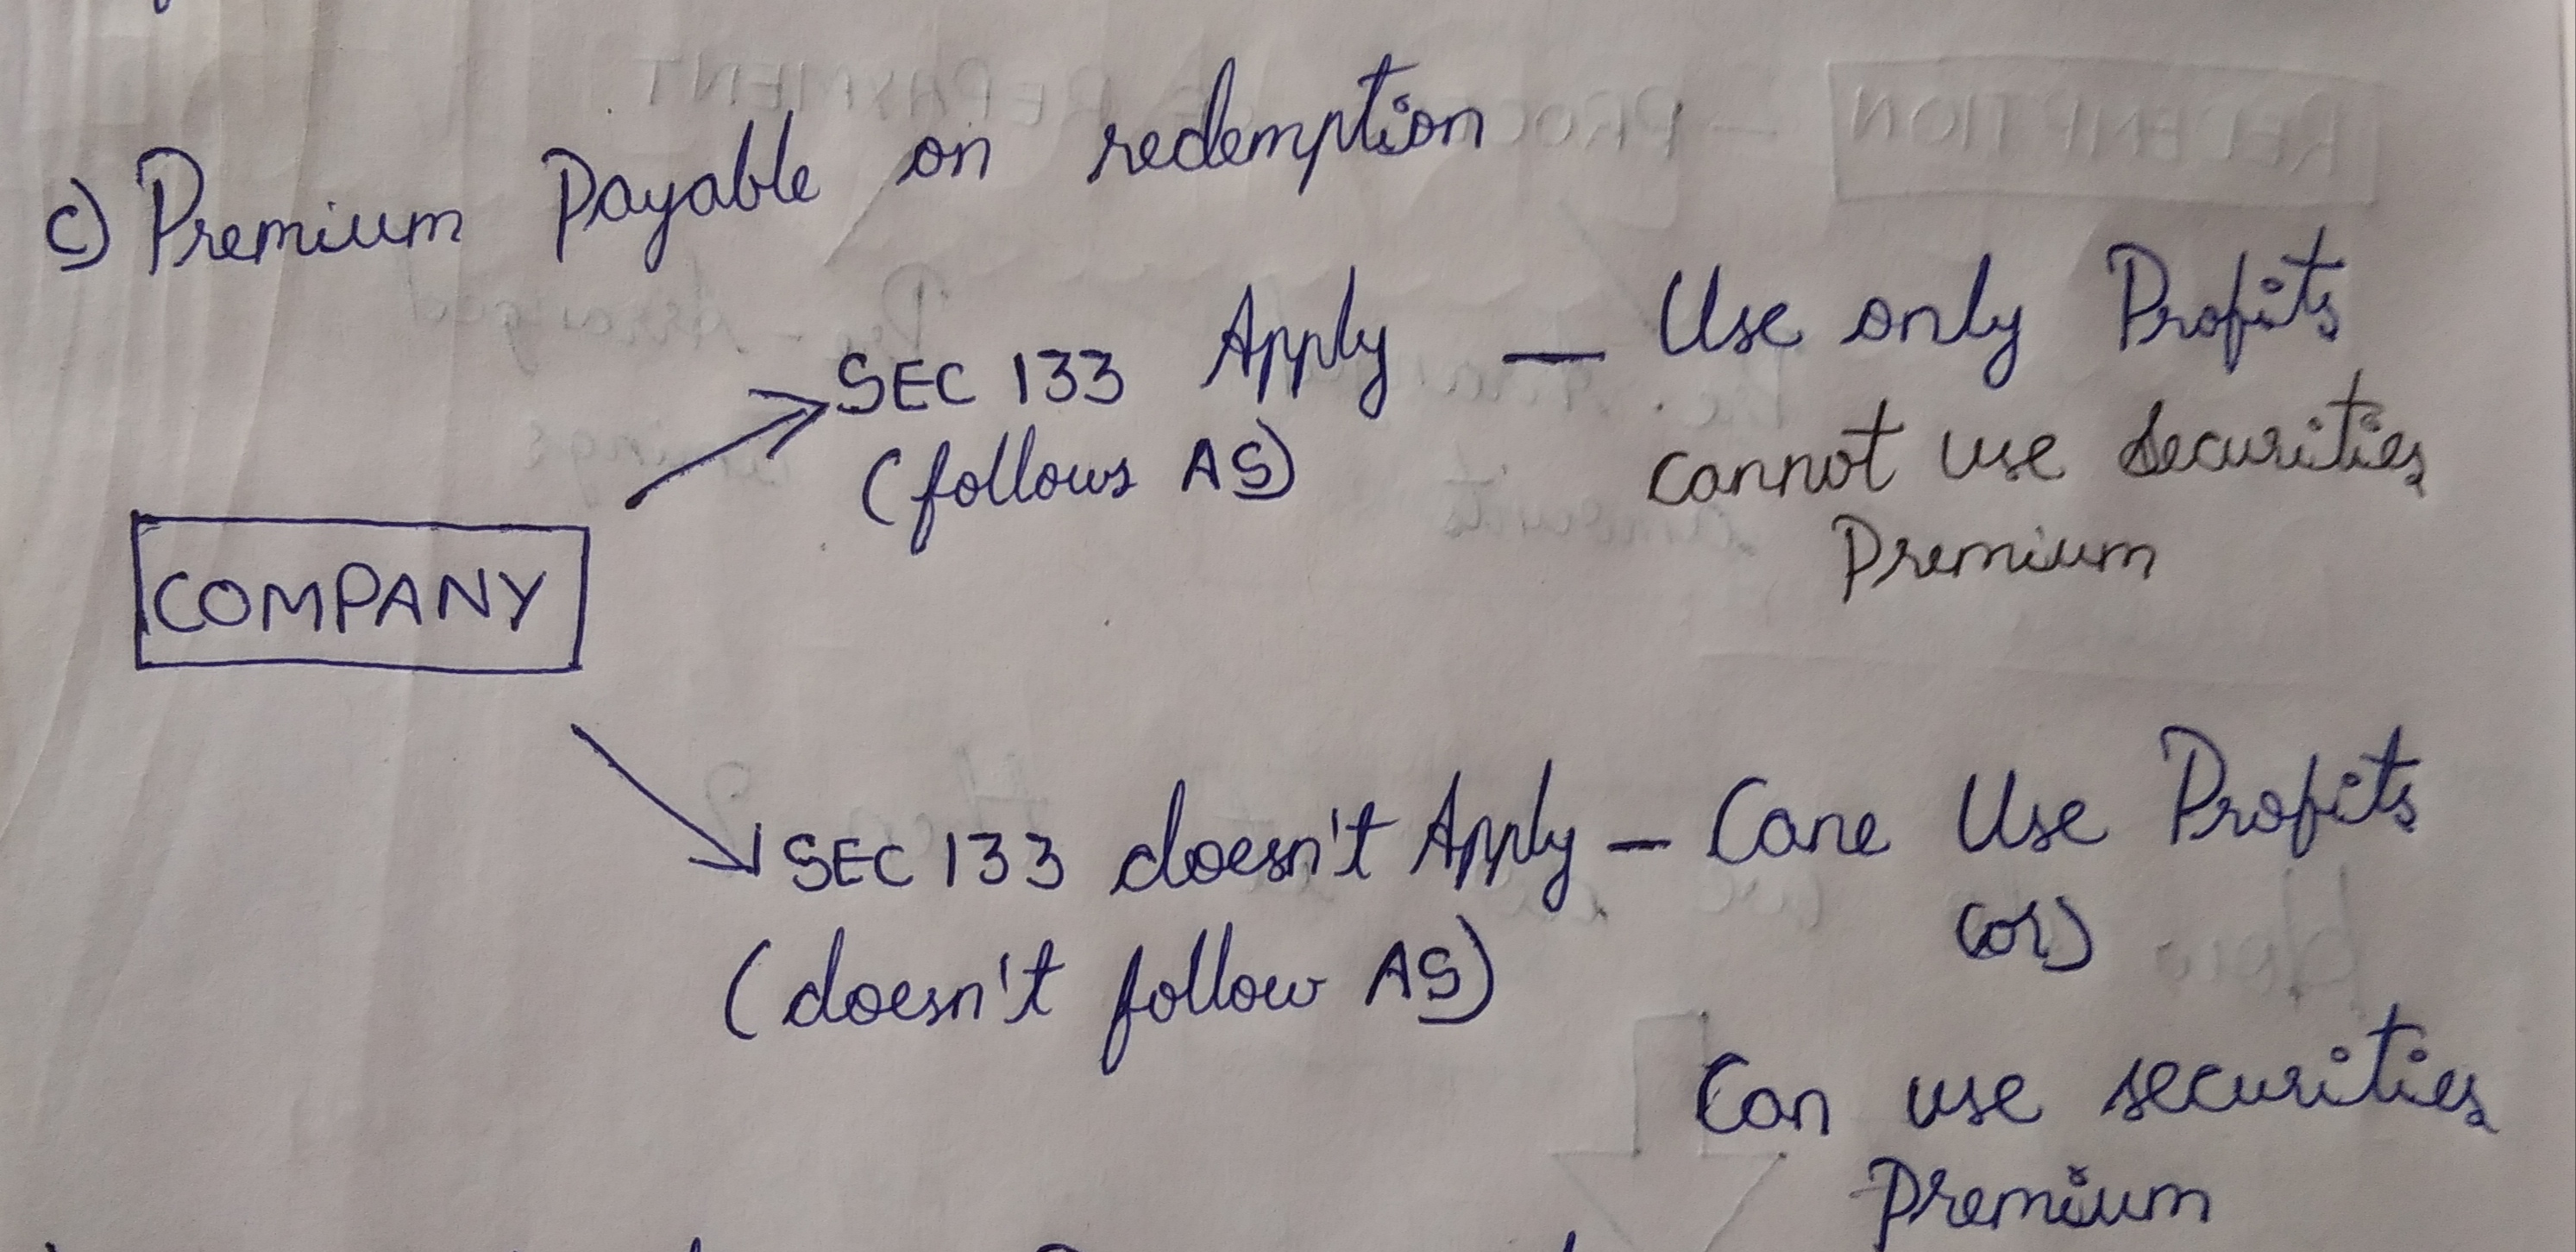 c) Premium Payable on redemption
SEC 133 Apply — Use only Profits
(follows AS)
cannot use securities
Premium
COMPANY
SEC 133 doesn't Apply — Cane Use Profits
(or)
(doesn't follow AS)
Can use securities
Premium